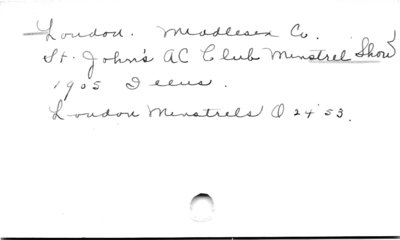 London. Middlesex Co.
St. John's AC Club Minstrel Show
1905 Illus.
London Minstrels O 24 '53.